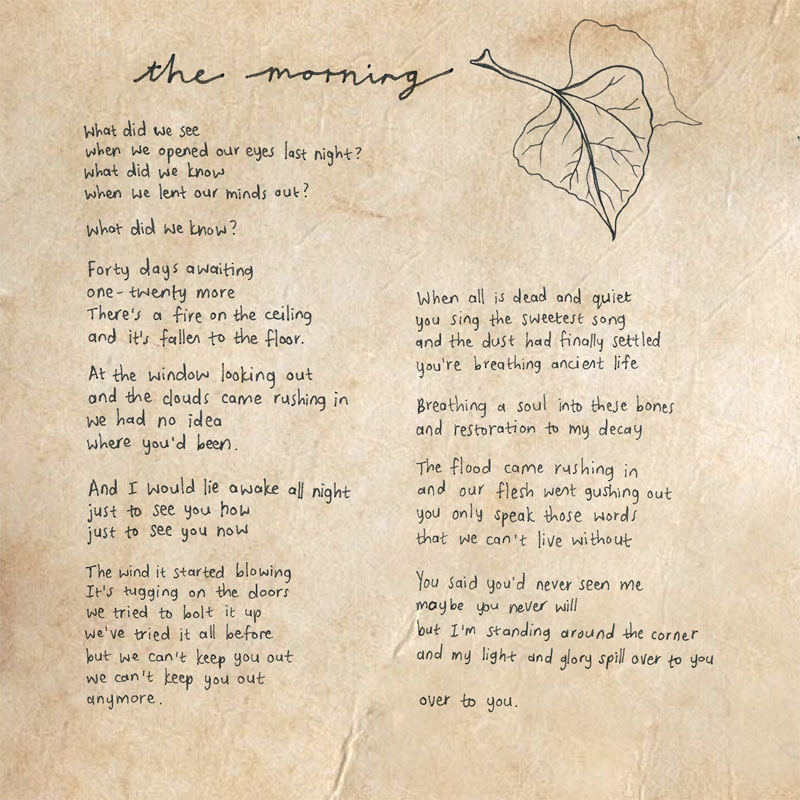 the morning
What did we see
when we opened our eyes last night?
what did we know
when we lent our minds out?
what did we know?
Forty days awaiting
one-twenty more
There's a fire on the ceiling
and it's fallen to the floor.
At the window looking out
and the clouds came rushing in
we had no idea
where you'd been.
And I would lie awake all night
just to see you how
just to see you now
The wind it started blowing
It's tugging on the doors
we tried to bolt it up
we've tried it all before
but we can't keep you out
we can't keep you out
anymore.
When all is dead and quiet
you sing the sweetest song
and the dust had finally settled
you're breathing ancient life
Breathing a soul into these bones
and restoration to my decay
The flood came rushing in
and our flesh went gushing out
you only speak those words
that we can't live without
You said you'd never seen me
maybe you never will
but I'm standing around the corner
and my light and glory spill over to you
over to you.